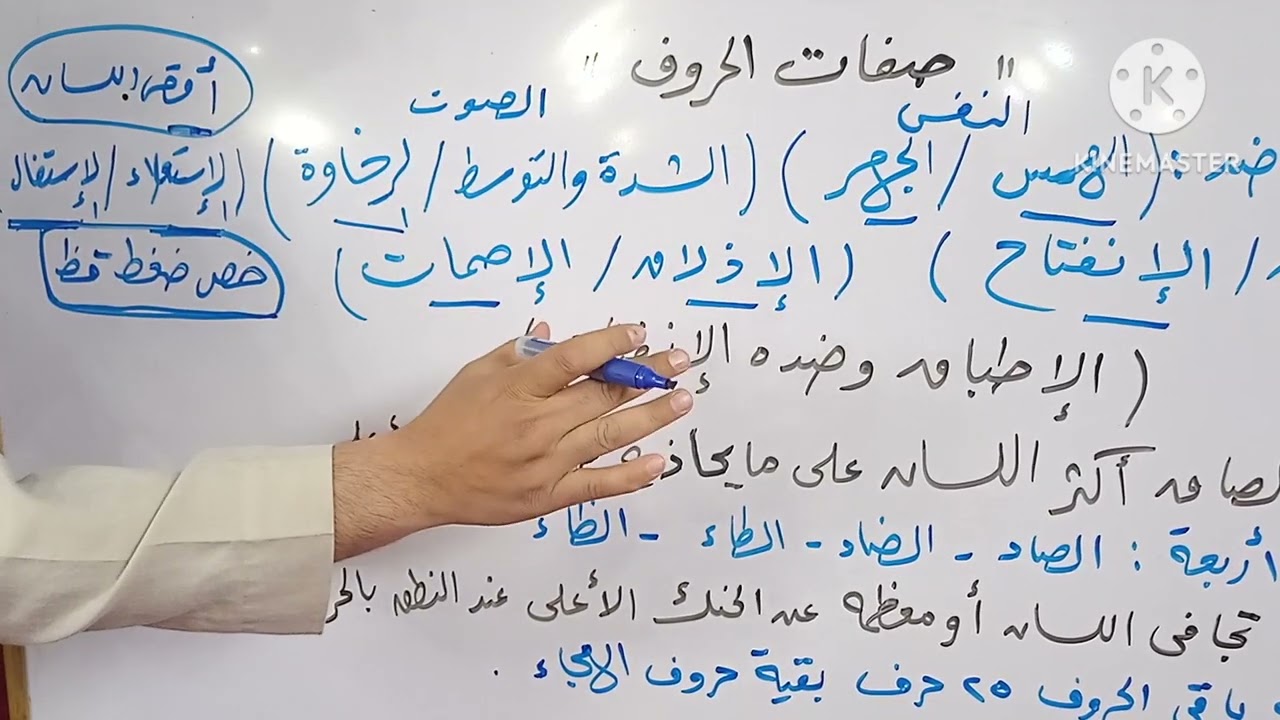 " صفات الحروف "
أقصى اللسان
الصوت
النفس
KINEMASTER
ضد : (الهمس / الجهر) (الشدة والتوسط / الرخاوة) (الإستعلاء / الإستفال
/ الإنفتاح ) (الإذلاق / الإصمات)
خص ضغط قظ
( الإطباق وضده
أكثر اللسان على ما يحاذيه
أربعة : الصاد - الضاد - الطاء - الظاء
تجافى اللسان أو معظمه عن الحنك الأعلى عند النطق
باقى الحروف ٢٥ حرف بقية حروف الهجاء .